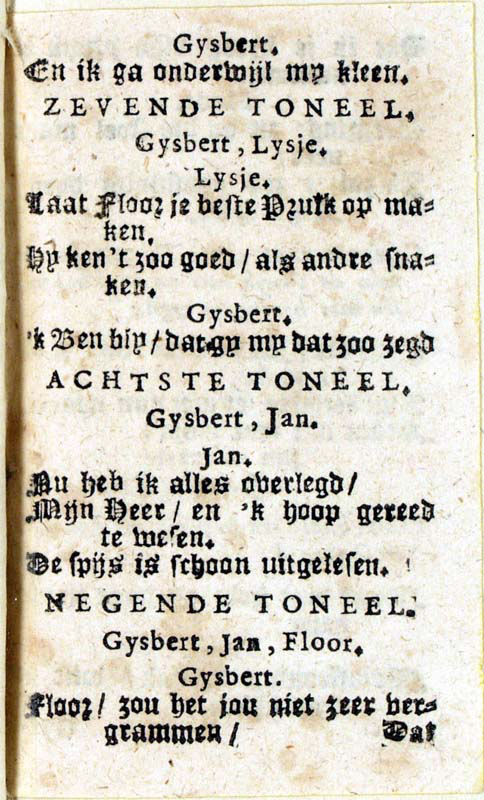 Gysbert.
En ik ga onderwijl my kleen.
ZEVENDE TONEEL.
Gysbert, Lysje.
Lysje.
Laat Floor je beste Pruik op ma-
ken,
Hy ken't zoo goed / als andre sna-
ken.
Gysbert.
'k Ben bly / dat gy my dat zoo zegd
ACHTSTE TONEEL.
Gysbert, Jan.
Jan.
Nu heb ik alles overlegd /
Mijn Heer / en 'k hoop gereed
te wesen.
De spijs is schoon uitgelesen.
NEGENDE TONEEL.
Gysbert, Jan, Floor.
Gysbert.
Floor / zou het jou niet zeer ver-
grammen / Dat